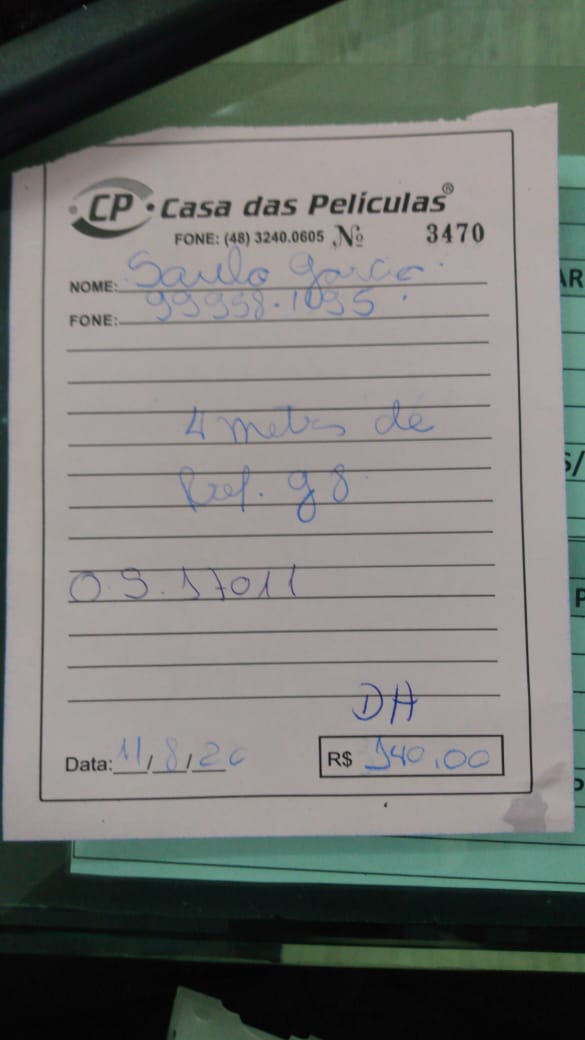 CP • Casa das Películas®
FONE: (48) 3240.0605 Nº 3470
NOME: Saulo Garcia
FONE: 99958.1095
4 metros de
Ref. g8
O.S. 17011
DH
Data: 11/8/20
R$ 140,00